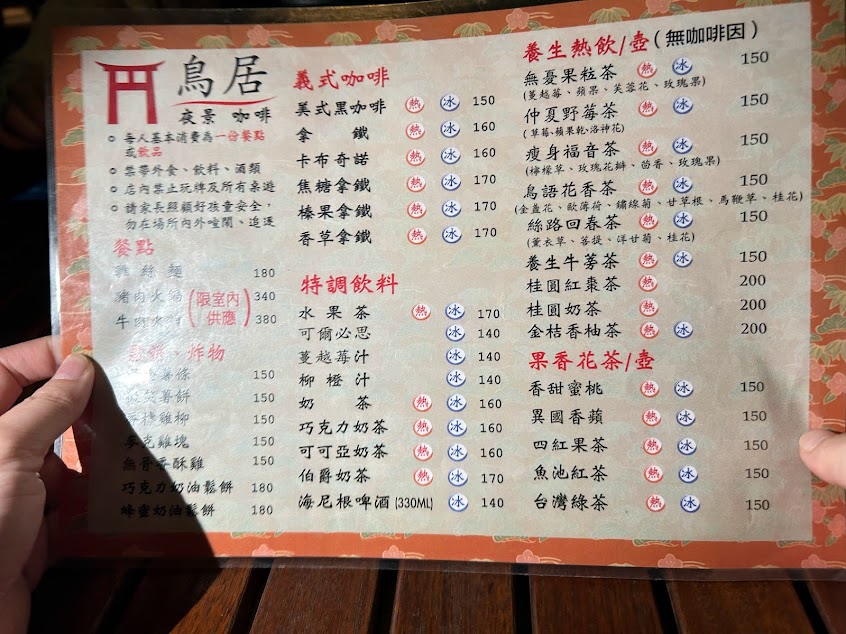 鳥居
夜景 咖啡
每人基本消費為一份餐點
或飲品
禁帶外食、飲料、酒類
店內禁止玩牌及所有桌遊
請家長照顧好孩童安全，
勿在場所內外喧鬧、追逐
餐點
雞絲麵 180
豬肉火鍋 340
牛肉火鍋 380
(限室內
供應)
鬆餅、炸物
薯條 150
薯餅 150
雞柳 150
麥克雞塊 150
無骨香酥雞 150
巧克力奶油鬆餅 180
蜂蜜奶油鬆餅 180
義式咖啡
美式黑咖啡 熱 冰 150
拿鐵 熱 冰 160
卡布奇諾 熱 冰 160
焦糖拿鐵 熱 冰 170
榛果拿鐵 熱 冰 170
香草拿鐵 熱 冰 170
特調飲料
水果茶 熱 冰 170
可爾必思 冰 140
蔓越莓汁 冰 140
柳橙汁 冰 140
奶茶 熱 冰 160
巧克力奶茶 熱 冰 160
可可亞奶茶 熱 冰 160
伯爵奶茶 熱 冰 170
海尼根啤酒 (330ML) 冰 140
養生熱飲/壺(無咖啡因)
無憂果粒茶 熱 冰 150
(蔓越莓、蘋果、芙蓉花、玫瑰果)
仲夏野莓茶 熱 冰 150
(草莓、蘋果乾、洛神花)
瘦身福音茶 熱 冰 150
(檸檬草、玫瑰花瓣、茴香、玫瑰果)
鳥語花香茶 熱 冰 150
(金盞花、歐薄荷、繡線菊、甘草根、馬鞭草、桂花)
絲路回春茶 熱 冰 150
(薰衣草、菩提、洋甘菊、桂花)
養生牛蒡茶 熱 冰 150
桂圓紅棗茶 熱 200
桂圓奶茶 熱 200
金桔香柚茶 熱 冰 200
果香花茶/壺
香甜蜜桃 熱 冰 150
異國香蘋 熱 冰 150
四紅果茶 熱 冰 150
魚池紅茶 熱 冰 150
台灣綠茶 熱 冰 150